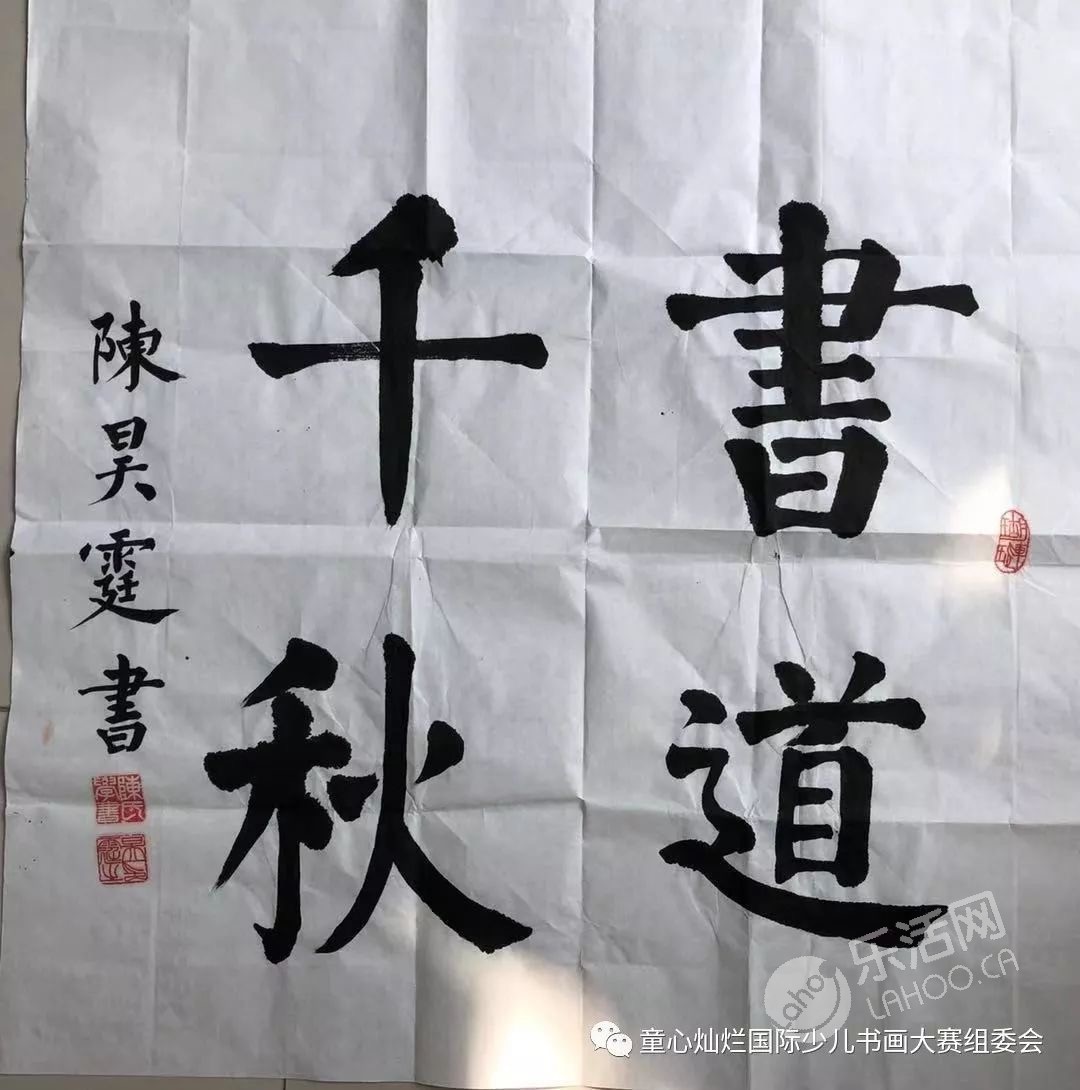 書道
千秋
陳昊霆書
陳氏
學書
乐活网
LAHOO.CA
Lahoo
童心灿烂国际少儿书画大赛组委会